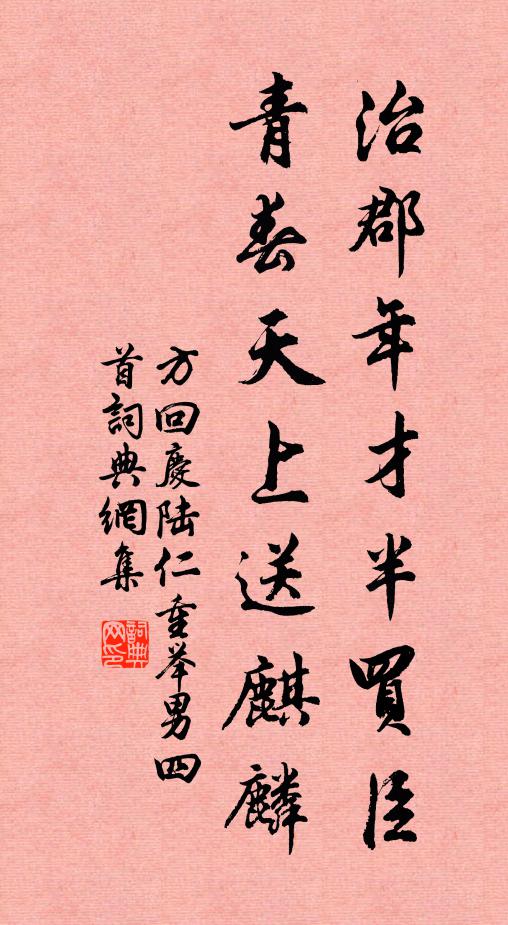 治郡年才半買臣
青春天上送麒麟
方回慶陆仁重举男四
首詞典網集
詞典网印